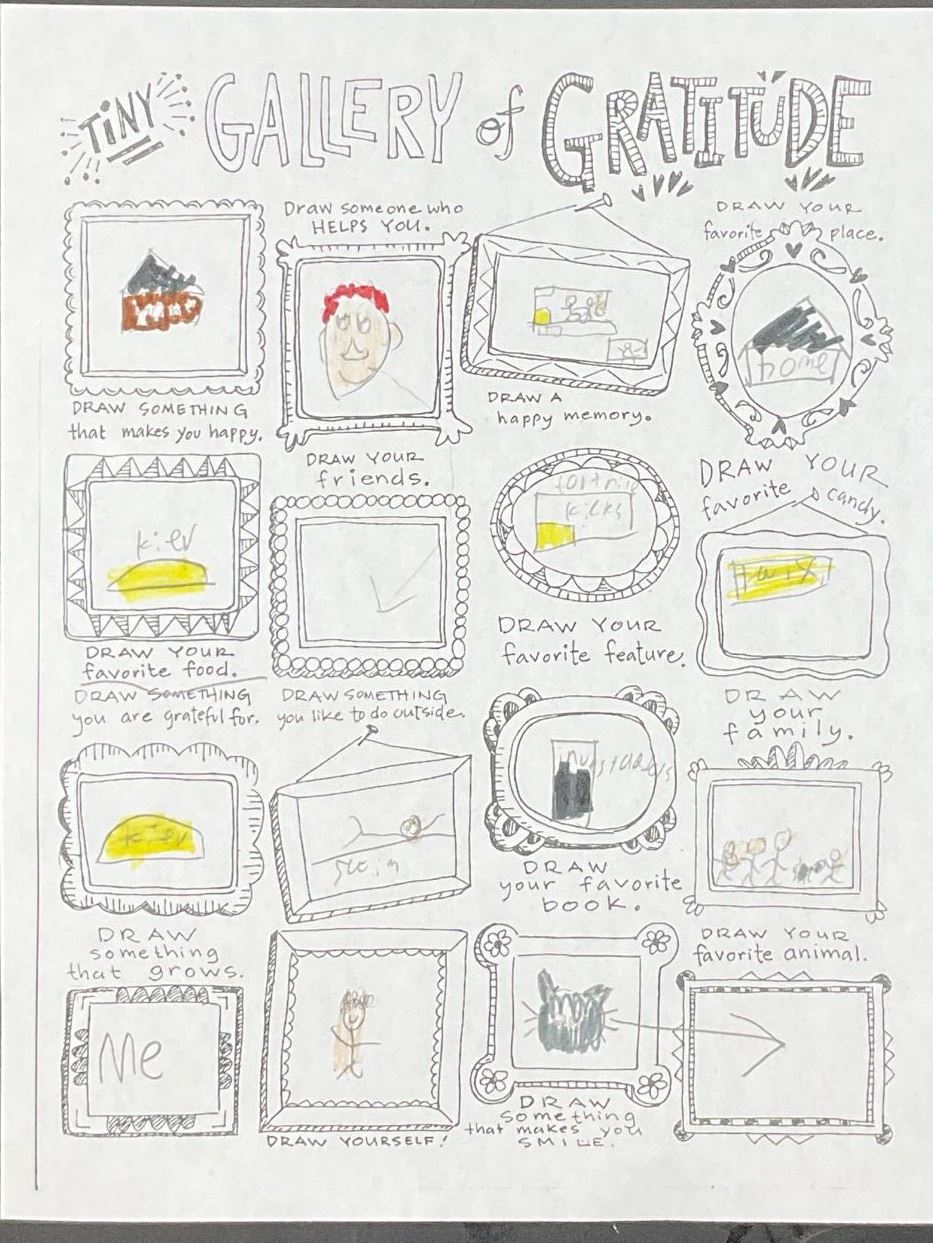 TiNY GALLERY of GRATITUDE
DRAW SOMETHING
that makes you happy.
Draw someone who
HELPS YOU.
DRAW A
happy memory.
DRAW YOUR
favorite place.
home
kiev
DRAW YOUR
favorite food.
DRAW YOUR
friends.
DRAW YOUR
favorite feature.
DRAW YOUR
favorite candy.
twix
DRAW SOMETHING
you are grateful for.
kiev
DRAW SOMETHING
you like to do outside.
DRAW
your favorite
book.
DRAW
your
family.
DRAW
something
that grows.
Me
DRAW YOURSELF!
DRAW
something
that makes you
SMILE.
DRAW YOUR
favorite animal.